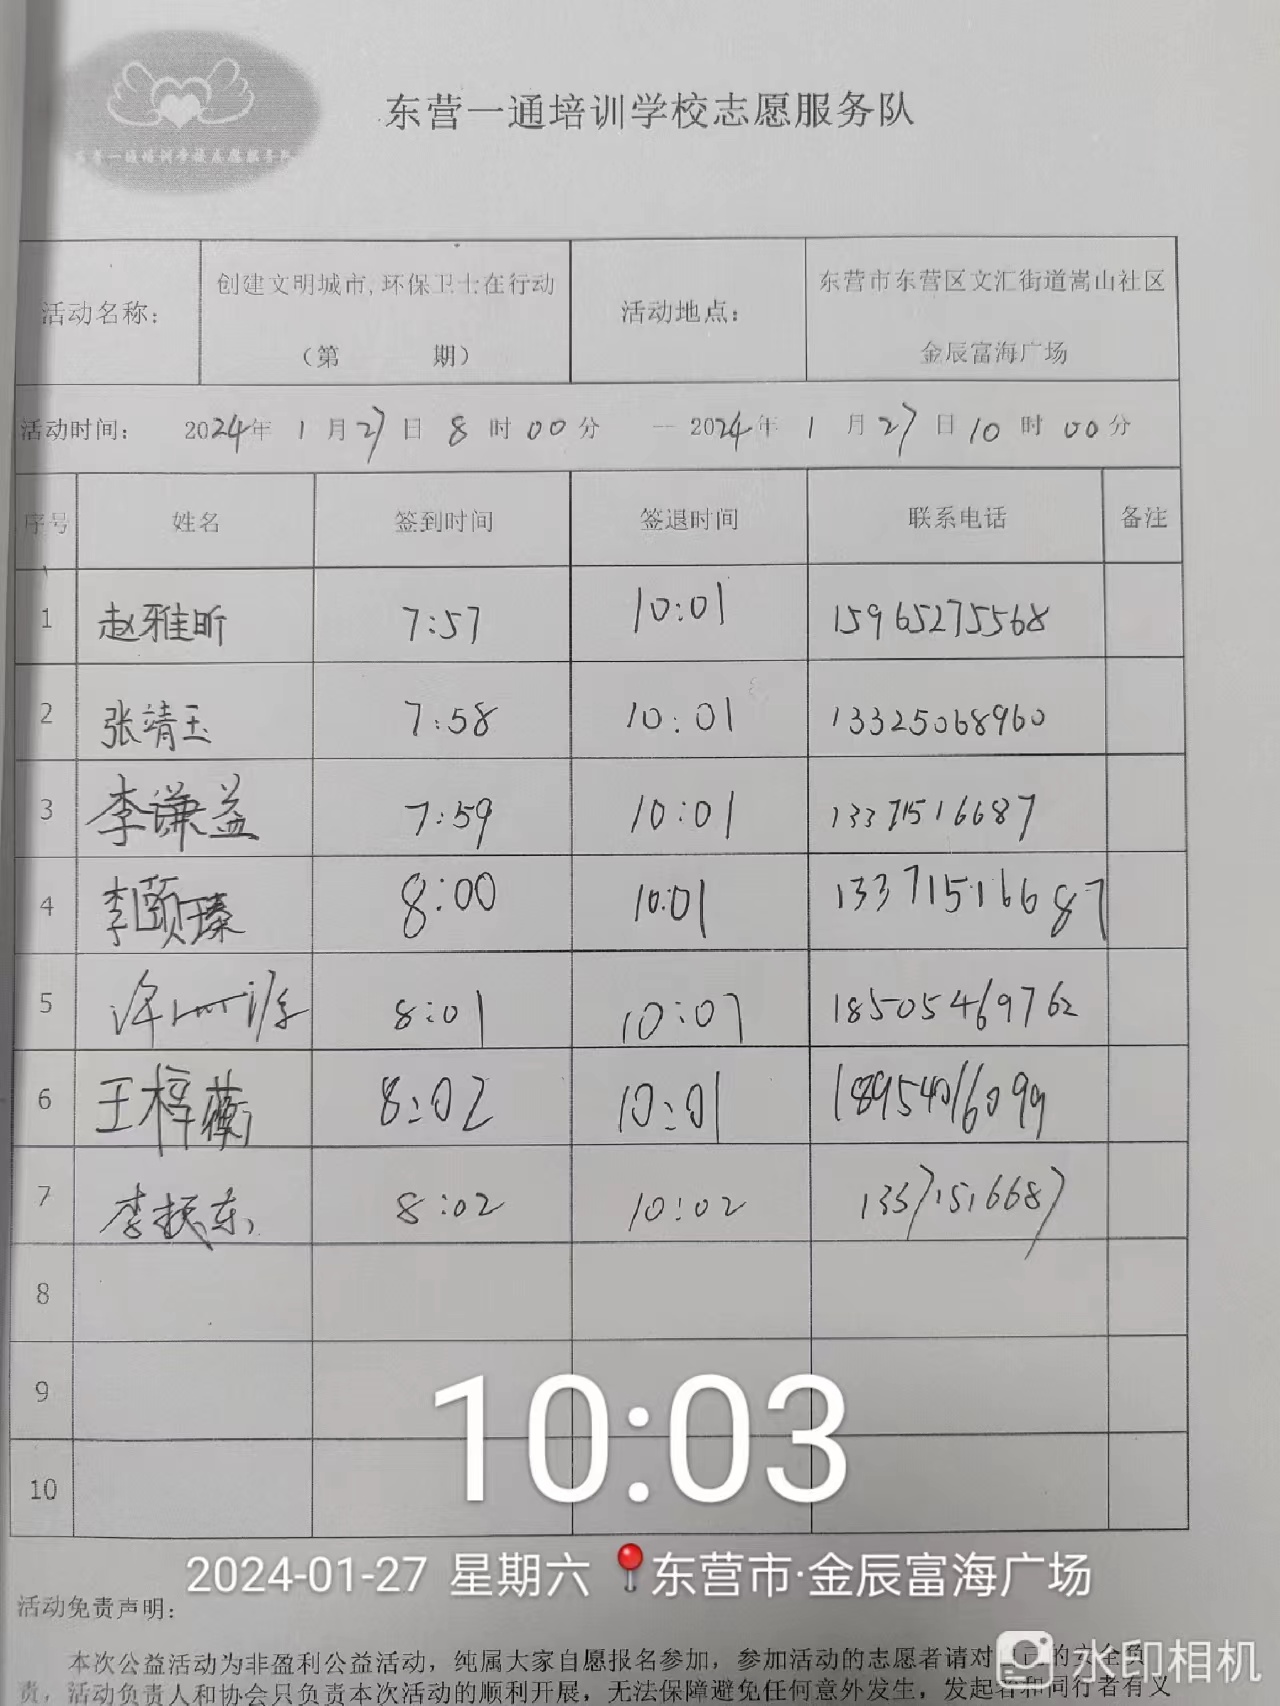 东营一通培训学校志愿服务队
东营一通培训学校志愿服务队
活动名称： 创建文明城市,环保卫士在行动（第 期） 活动地点： 东营市东营区文汇街道嵩山社区金辰富海广场
活动时间： 2024年 1月27日 8时00分 — 2024年 1月27日10时00分
序号 姓名 签到时间 签退时间 联系电话 备注
1 赵雅昕 7:57 10:01 15965275568
2 张靖玉 7:58 10:01 13325068960
3 李谦益 7:59 10:01 13371516687
4 李颐臻 8:00 10:01 13371516687
5 8:01 10:07 18505469762
6 王梓蘅 8:02 10:01 18954016099
7 李振东 8:02 10:02 13371516687
8
9
10
10:03
2024-01-27 星期六 东营市·金辰富海广场
活动免责声明：
本次公益活动为非盈利公益活动，纯属大家自愿报名参加，参加活动的志愿者请对自己的安全负
责，活动负责人和协会只负责本次活动的顺利开展，无法保障避免任何意外发生，发起者和同行者有义
水印相机